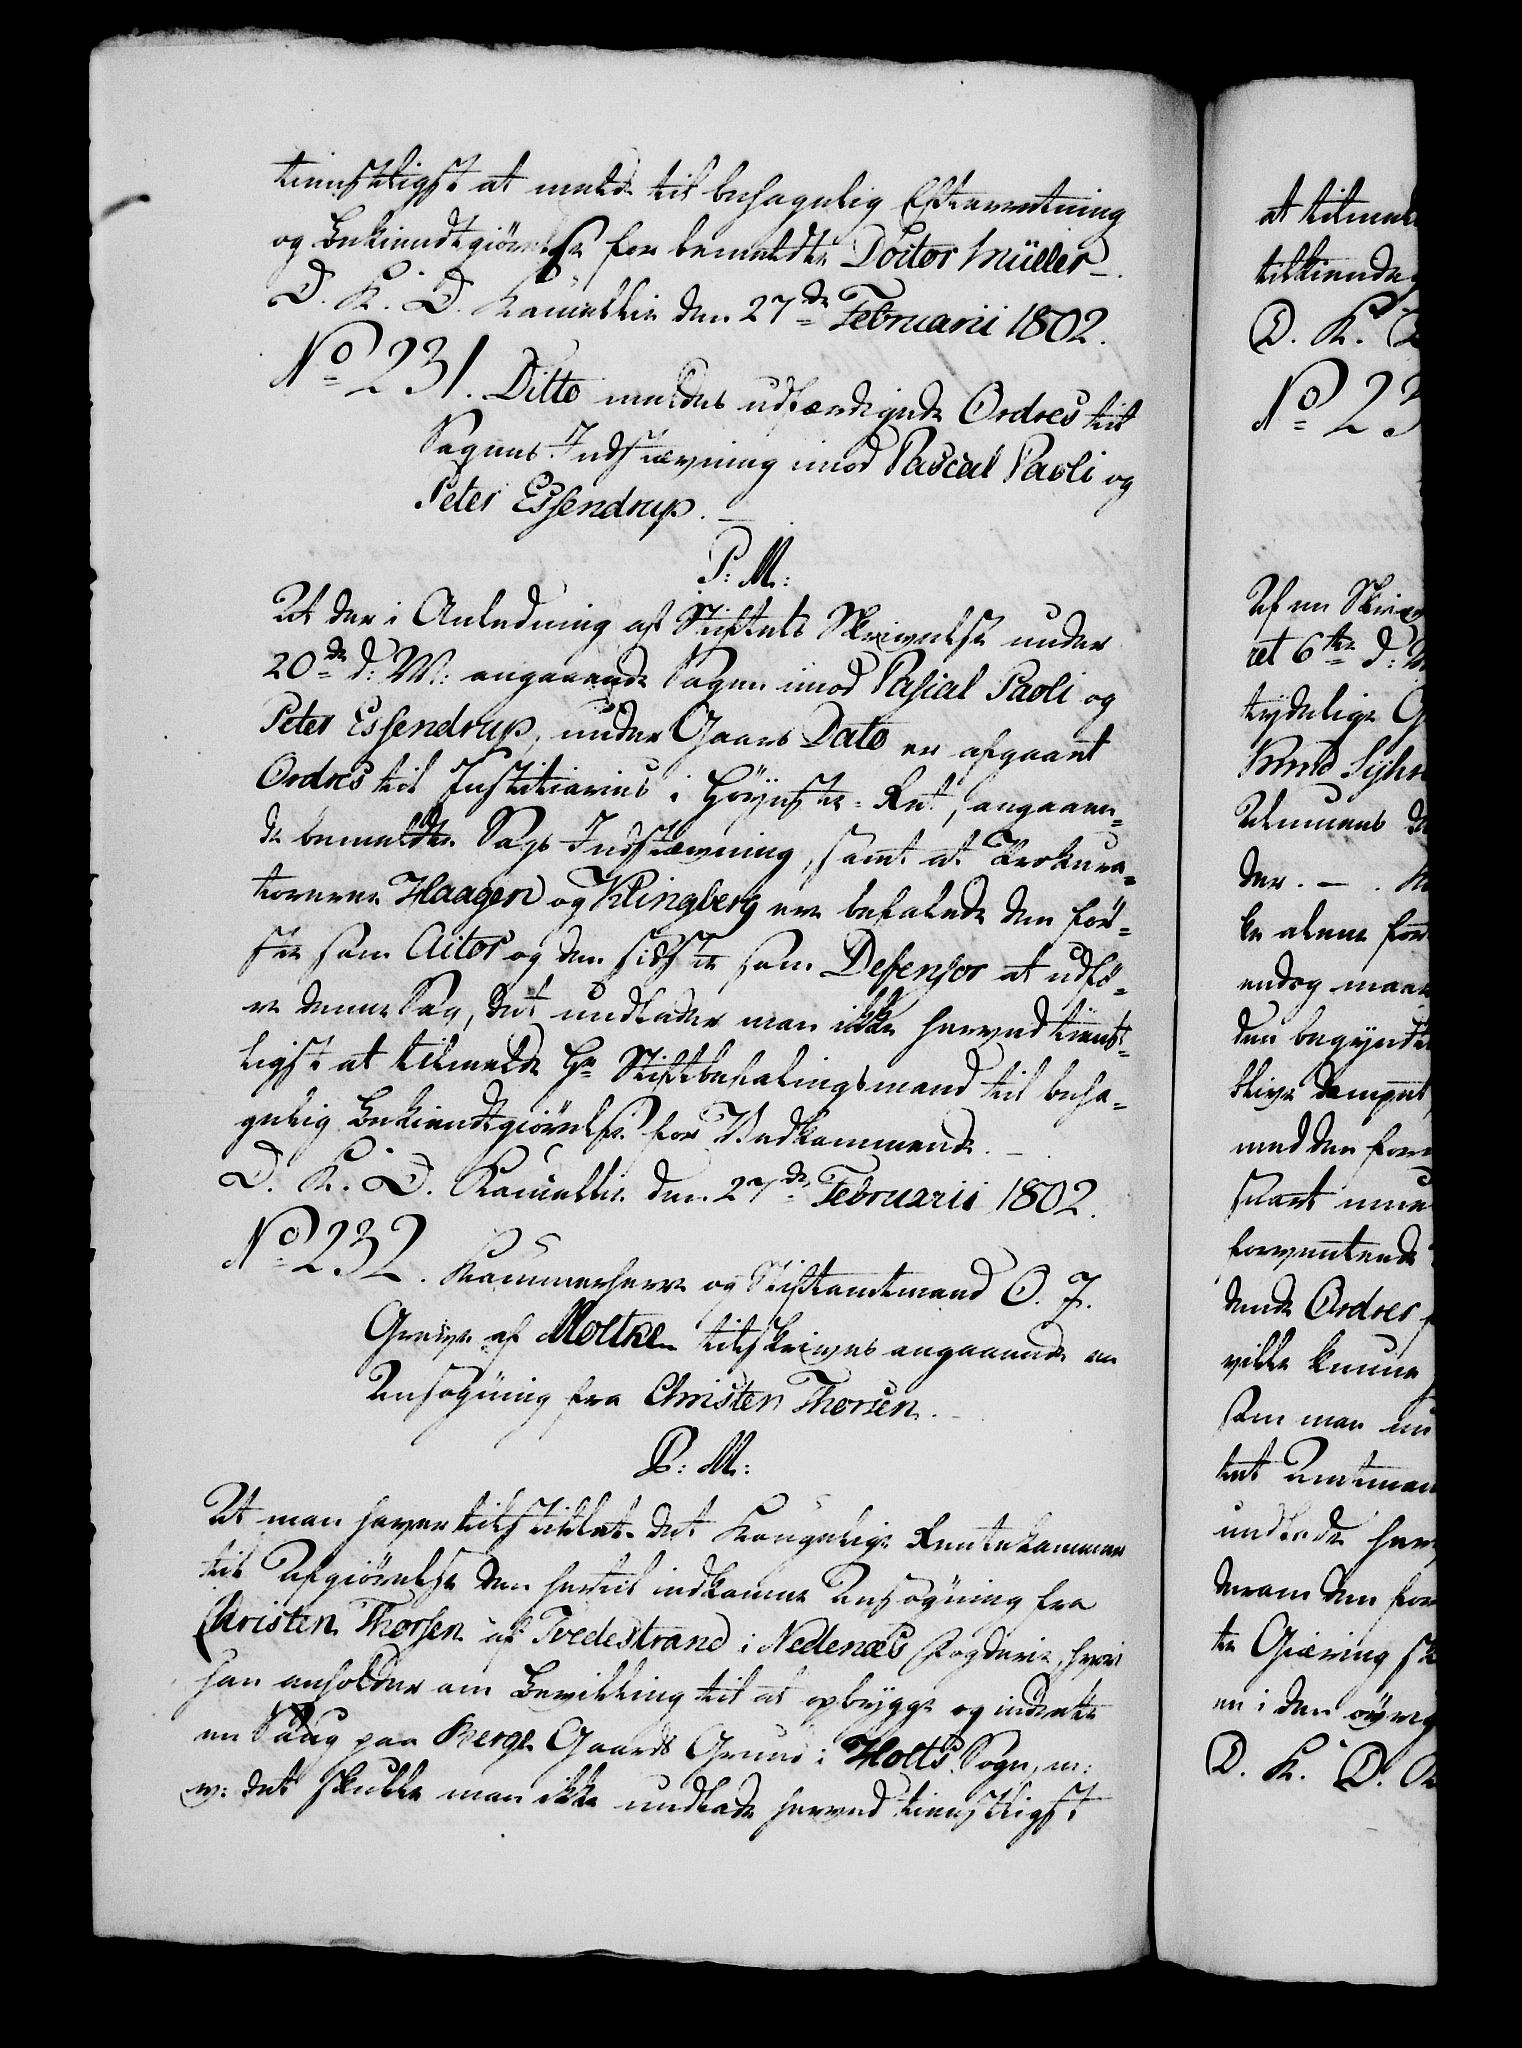 tienstligst at melde til behagelig Efterretning
og Bekiendtgiørelse for bemeldte Doctor Müller.
D. K. D. Kancellie den 27de Februarii 1802.
No 231. Ditto meldes udfærdigede Ordres til
Sagens Indstævning imod Pascal Paoli og
Peter Essendrup.
P: M:
At der i Anledning af Stiftets Skrivelse under
20de d: M: angaaende Sagen imod Pascal Paoli og
Peter Essendrup, under Gaars Dato er afgaaet
Ordres til Justitiarius i Høyeste-Ret, angaaen-
de bemeldte Sags Indstævning, samt at Prokura-
torerne Haagen og Klingberg ere befalede den för-
ste som Actor og den sidste som Defensor at udfö-
re denne Sag, det undlader man ikke herved tienst-
ligst at tilmelde Hr Stiftbefalingsmand til beha-
gelig Bekiendtgiørelse for Vedkommende.
D. K. D. Kancellie den 27de Februarii 1802.
No 232. Kammerherre og Stiftamtmand O. J.
Greve af Moltke tilskrives angaaende en
Ansøgning fra Christen Thorsen.
P: M:
At man haver tilstillet det Kongelige Rentekammer
til Afgiørelse den hertil indkomne Ansøgning fra
Christen Thorsen af Tvedestrand i Nedenæs Fogderie, hvori
han anholder om Bevilling til at opbygge og indrette
en Saug paa Berge Gaards Grund i Holts Sogn, m:
v: det skulle man ikke undlade herved tienstligst
at tilmel
tilkiende
D. K. D
No 23
Af en Skriv
ret 6te d: M
tydelige
Knud
Almuens
der. —.
le alene for
endog maa
den begyndt
blive dempet,
med den for
snart mue
forventende
dende Ordres
ville kunne
som man
tet Amtman
undlade her
derom den for
te Giæring sk
en i den øvrig
D. K. D. K